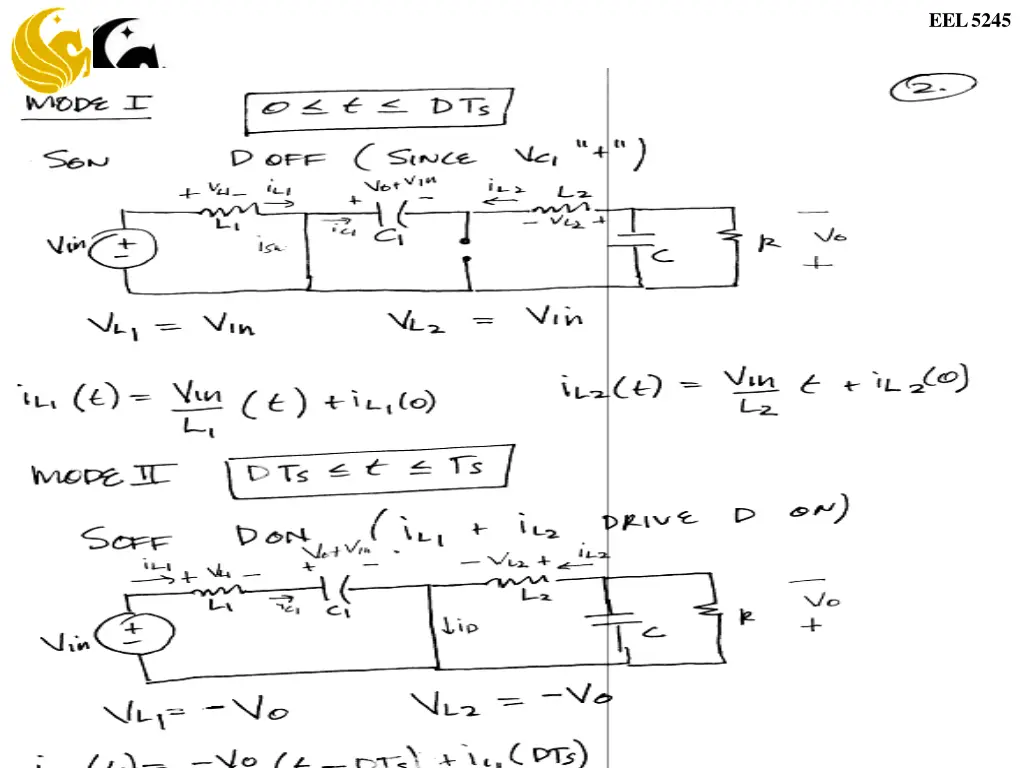 EEL 5245
2.
MODE I 0 ≤ t ≤ DTs
SON D OFF (SINCE VC1 "+")
+ VL1 - iL1 + Vo+Vin - iL2 L2
L1 iC1 C1 - VL2 +
Vin + - isw C R - Vo +
VL1 = Vin VL2 = Vin
iL1(t) = Vin/L1 (t) + iL1(0) iL2(t) = Vin/L2 t + iL2(0)
MODE II DTs ≤ t ≤ Ts
SOFF DON (iL1 + iL2 DRIVE D ON)
iL1 + VL1 - + Vo+Vin - - VL2 + iL2
L1 iC1 C1 L2
Vin + - ↓iD C R - Vo +
VL1 = -Vo VL2 = -Vo
(t) = -Vo (t - DTs) + iL1(DTs)